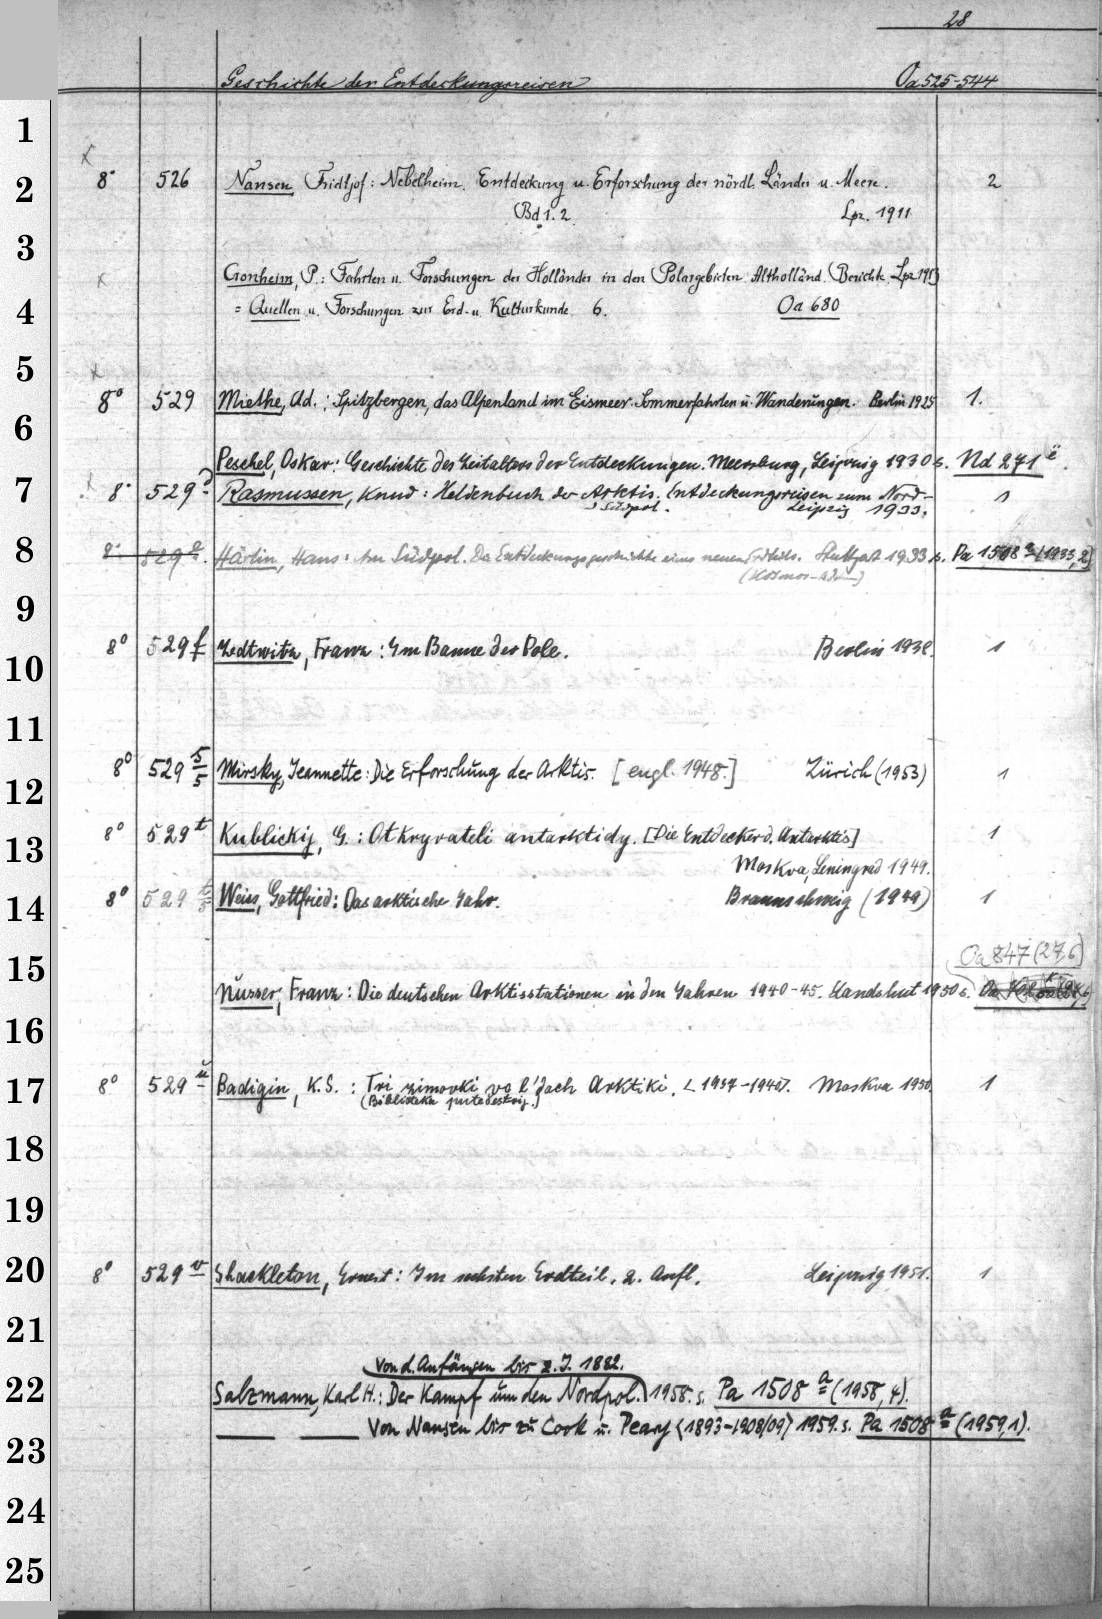 28
Geschichte der Entdeckungsreisen Oa 525-544
1
2 8° 526 Nansen Fridtjof: Nebelheim. Entdeckung u. Erforschung der nördl. Länder u. Meere. 2
Bd 1. 2. Lpz. 1911
3
Conheim, P.: Fahrten u. Forschungen der Holländer in den Polargebieten. Altholländ. Berichte. Lpz
4 = Quellen u. Forschungen zur Erd- u. Kulturkunde 6. Oa 680
5
8° 529 Miethe, Ad.: Spitzbergen, das Alpenland im Eismeer. Sommerfahrten u. Wanderungen. Berlin 1925 1.
6
Peschel, Oskar: Geschichte des Zeitalters der Entdeckungen. Meersburg, Leipzig 1930 s. Nd 271 ë.
7 8° 529 d Rasmussen, Knud: Heldenbuch der Arktis. Entdeckungsreisen zum Nord- 1
u. Südpol. Leipzig 1933.
8 8° 529 e. Härlin, Hans: Am Südpol. Die Entdeckungsgeschichte eines neuen Erdteils. Stuttgart 1933 s. Pa 1508 a (1933, 2)
(Kosmos-)
9
10 8° 529 f Zedtwitz, Franz: Im Banne der Pole. Berlin 1938. 1
11
12 8° 529 5/5 Mirsky, Jeannette: Die Erforschung der Arktis. [engl. 1948.] Zürich (1953) 1
13 8° 529 t Kublickij, G.: Otkryvateli antarktidy. [Die Entdecker d. Antarktis] 1
Moskva, Leningrad 1949.
14 8° 529 Weiss, Gottfried: Das arktische Jahr. Braunschweig (1949) 1
Oa 847 (27,6)
15 Nusser, Franz: Die deutschen Arktisstationen in den Jahren 1940-45. Landshut 1950 s.
16
17 8° 529 u Badigin, K.S.: Tri zimovki vo l'dach Arktiki. 1937-1940. Moskva 1950. 1
(Biblioteka putešestvij.)
18
19
20 8° 529 v Shackleton, Ernest: Im sechsten Erdteil. 2. Aufl. Leipzig 1951. 1
21
Von d. Anfängen bis z. J. 1882.
22 Salzmann, Karl H.: Der Kampf um den Nordpol. 1958. s. Pa 1508 a (1958, 4).
Von Nansen bis zu Cook u. Peary (1893-1908/09) 1959. s. Pa 1508 a (1959, 1).
23
24
25